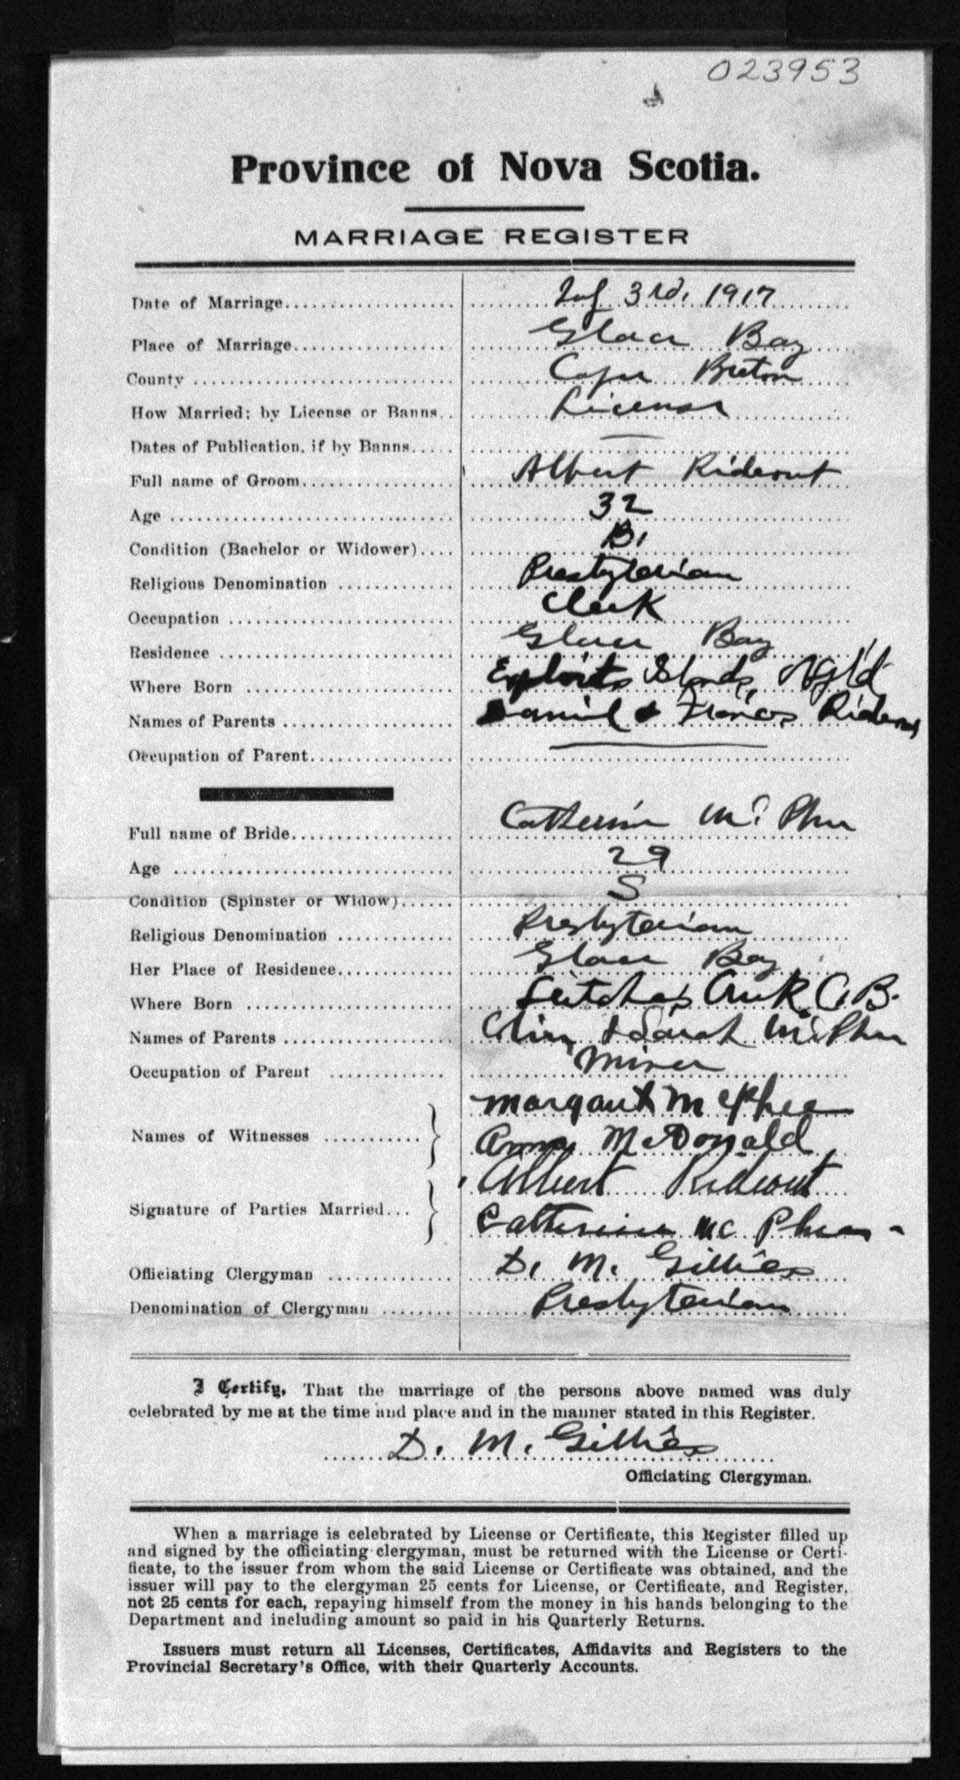 023953
Province of Nova Scotia.
MARRIAGE REGISTER
Date of Marriage 3rd, 1917
Place of Marriage Glace Bay
County Cape Breton
How Married; by License or Banns License
Dates of Publication, if by Banns
Full name of Groom Albert Rideout
Age 32
Condition (Bachelor or Widower) B.
Religious Denomination Presbyterian
Occupation Clerk
Residence Glace Bay
Where Born Exploits Islands, Nfld
Names of Parents Daniel & Frances Rideout
Occupation of Parent
Full name of Bride Catherine McPhee
Age 29
Condition (Spinster or Widow) S
Religious Denomination Presbyterian
Her Place of Residence Glace Bay
Where Born Leitches Creek C.B.
Names of Parents Colin & Sarah McPhee
Occupation of Parent Miner
Names of Witnesses Margaret McPhee
Anna McDonald
Signature of Parties Married Albert Rideout
Catherine Mc Phee
Officiating Clergyman D. M. Gillies
Denomination of Clergyman Presbyterian
I Certify, That the marriage of the persons above named was duly
celebrated by me at the time and place and in the manner stated in this Register.
D. M. Gillies
Officiating Clergyman.
When a marriage is celebrated by License or Certificate, this Register filled up
and signed by the officiating clergyman, must be returned with the License or Certi-
ficate, to the issuer from whom the said License or Certificate was obtained, and the
issuer will pay to the clergyman 25 cents for License, or Certificate, and Register,
not 25 cents for each, repaying himself from the money in his hands belonging to the
Department and including amount so paid in his Quarterly Returns.
Issuers must return all Licenses, Certificates, Affidavits and Registers to the
Provincial Secretary's Office, with their Quarterly Accounts.